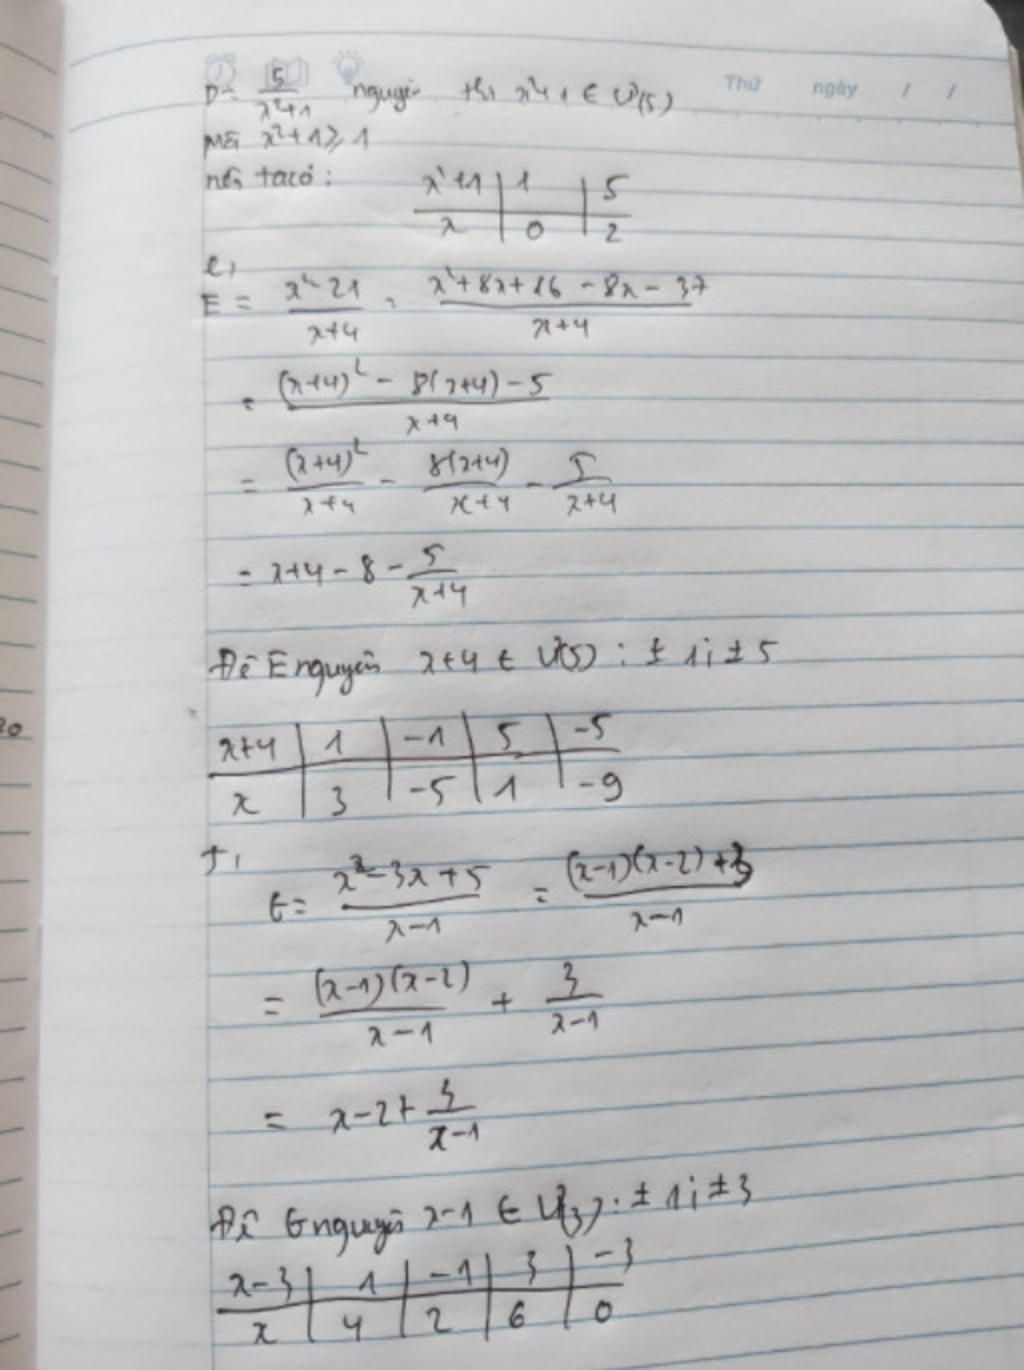 Thứ ngày / /
D = 5/(x²+1) nguyên thì x²+1 ∈ Ư(5)
Mà x²+1 ≥ 1
nên ta có:
x²+1 | 1 | 5
x | 0 | 2
e,
E = (x²-21)/(x+4) = (x²+8x+16-8x-37)/(x+4)
= ((x+4)² - 8(x+4) - 5)/(x+4)
= (x+4)²/(x+4) - 8(x+4)/(x+4) - 5/(x+4)
= x+4-8-5/(x+4)
Để E nguyên x+4 ∈ Ư(5) : ±1; ±5
x+4 | 1 | -1 | 5 | -5
x | 3 | -5 | 1 | -9
f,
G = (x²-3x+5)/(x-1) = ((x-1)(x-2)+3)/(x-1)
= (x-1)(x-2)/(x-1) + 3/(x-1)
= x-2+3/(x-1)
Để G nguyên x-1 ∈ Ư(3) : ±1; ±3
x-3 | 1 | -1 | 3 | -3
x | 4 | 2 | 6 | 0